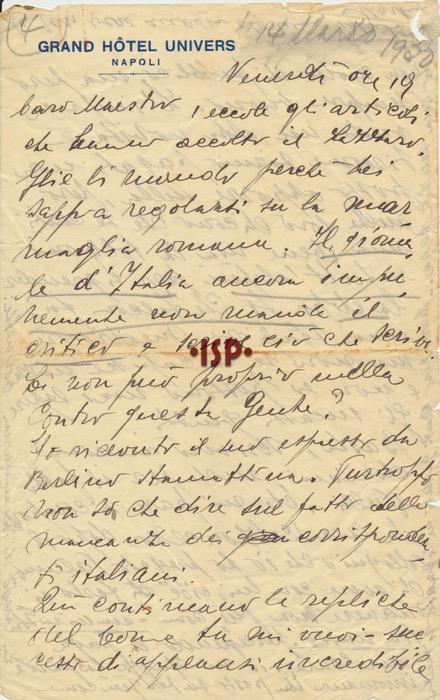 4
14 Marzo 1930
GRAND HÔTEL UNIVERS
NAPOLI
Venerdì ore 19
Caro Maestro eccole gli articoli
che hanno accolto il
Glie li mando perché Lei
sappia regolarsi su la mar
maglia romana. Il giorna
le d'Italia ancora impu
nemente non manda il
critico e ciò che scrive.
Lei non può proprio nulla
contro questa gente?
Ho ricevuto il suo espresso da
Berlino stamattina. Purtroppo
non so che dire sul fatto della
mancanza dei corrisponden
ti italiani.
Qui continuano le repliche
del Come tu mi vuoi - suc
cesso di applausi incredibile
ISP